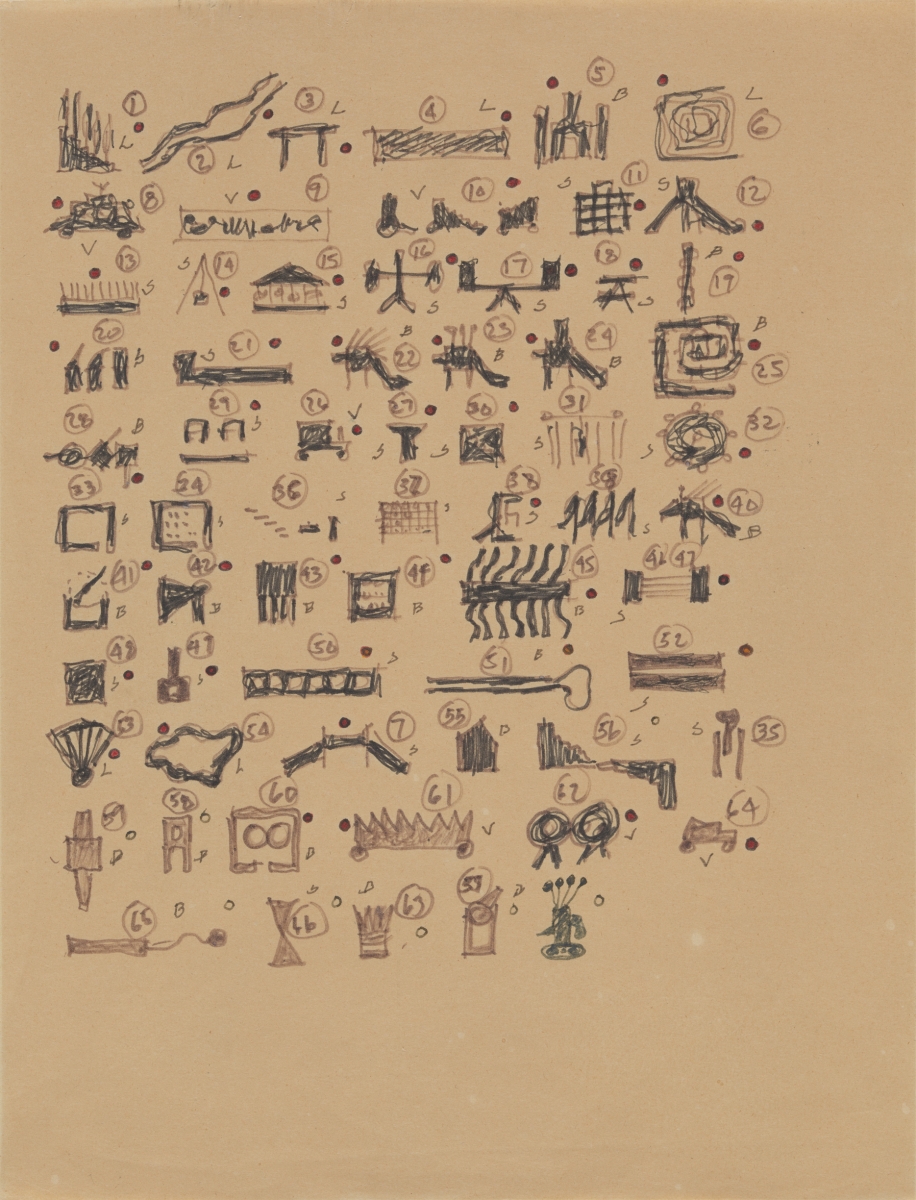 1 L 2 L 3 L 4 L 5 B L 6
8 V V 9 V 10 S 11 S 12
13 S S 14 15 S 16 S 17 S 18 S B 19
20 S S 21 22 B 23 B 24 B B 25
28 B 29 S 26 V 27 S 30 S 31 S S 32
33 S 34 S 36 S 37 S 38 S 39 S 40 B
41 B 42 B 43 B 44 B 45 B 46 47 S
48 S 49 S 50 S 51 B 52 S
53 L 54 L 7 S 55 B 56 S S 35
57 B 58 B 60 B 61 V 62 V 64 V
65 B 66 S 63 B 59 B